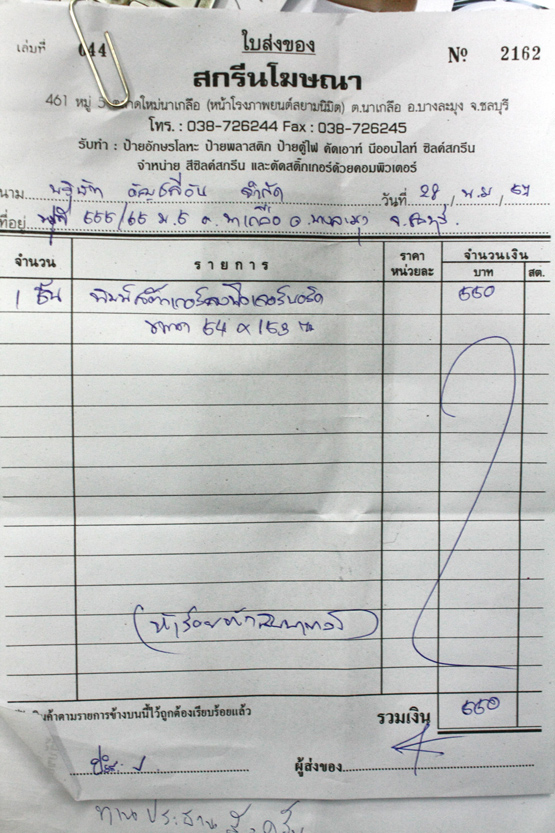 ใบส่งของ
เล่มที่ 044 Nº 2162
สกรีนโฆษณา
461 หมู่ 5 ตลาดใหม่นาเกลือ (หน้าโรงภาพยนต์สยามนิมิต) ต.นาเกลือ อ.บางละมุง จ.ชลบุรี
โทร. : 038-726244 Fax : 038-726245
รับทำ : ป้ายอักษรโลหะ ป้ายพลาสติก ป้ายตู้ไฟ คัดเอาท์ นีออนไลท์ ซิลค์สกรีน
จำหน่าย สีซิลค์สกรีน และตัดสติ๊กเกอร์ด้วยคอมพิวเตอร์
นาม บริษัท จำกัด วันที่ 28 / พ.ย / 57
ที่อยู่ 555/65 ม.5 ต.นาเกลือ อ.บางละมุง จ.ชลบุรี.
จำนวน รายการ ราคาหน่วยละ จำนวนเงิน
บาท สต.
1 ชิ้น พิมพ์สติ๊กเกอร์ลงฟิวเจอร์บอร์ด 550
ขนาด 54 x 153
(ห้าร้อยห้าสิบบาทถ้วน)
สินค้าตามรายการข้างบนนี้ไว้ถูกต้องเรียบร้อยแล้ว รวมเงิน 550
ผู้ส่งของ